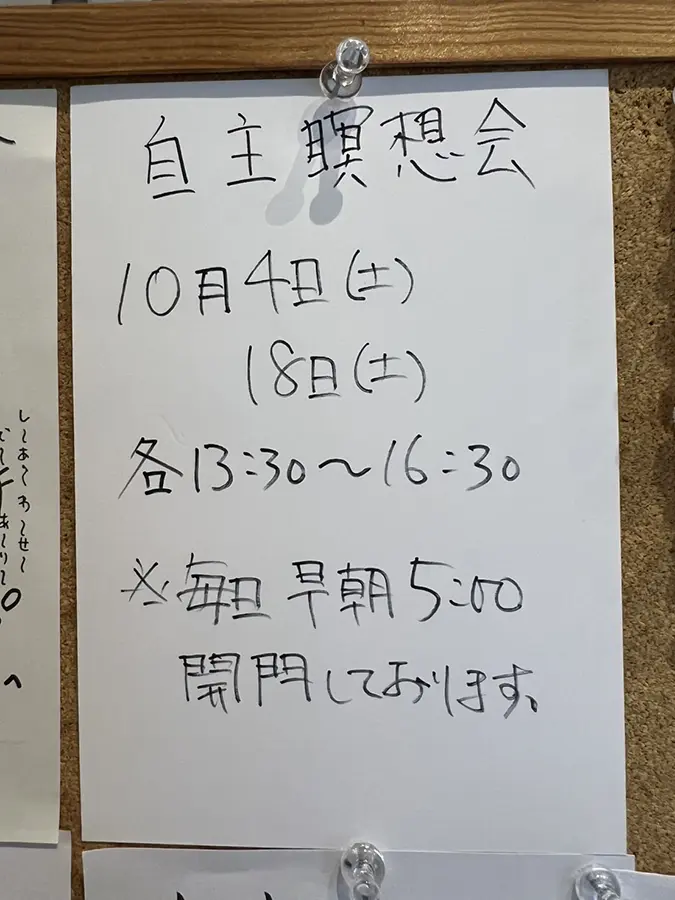 自主瞑想会
10月4日(土)
18日(土)
各13:30～16:30
※毎日早朝5:00
開門しております。
し～あ～わ～せ～